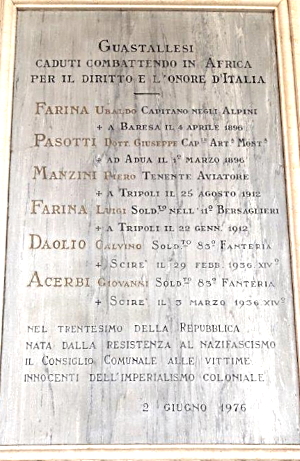 GUASTALLESI
CADUTI COMBATTENDO IN AFRICA
PER IL DIRITTO E L'ONORE D'ITALIA
FARINA UBALDO CAPITANO NEGLI ALPINI
+ A BARESA IL 4 APRILE 1896
PASOTTI DOTT. GIUSEPPE CAPNO ARTA MONTA
+ AD ADUA IL 1º MARZO 1896
MANZINI PIERO TENENTE AVIATORE
+ A TRIPOLI IL 25 AGOSTO 1912
FARINA LUIGI SOLDTO NELL'11º BERSAGLIERI
+ A TRIPOLI IL 22 GENN. 1912
DAOLIO CALVINO SOLDTO 83º FANTERIA
+ SCIRE' IL 29 FEBB. 1936.XIVº
ACERBI GIOVANNI SOLDTO 83º FANTERIA
+ SCIRE' IL 3 MARZO 1936.XIVº
NEL TRENTESIMO DELLA REPUBBLICA
NATA DALLA RESISTENZA AL NAZIFASCISMO
IL CONSIGLIO COMUNALE ALLE VITTIME
INNOCENTI DELL'IMPERIALISMO COLONIALE
2 GIUGNO 1976